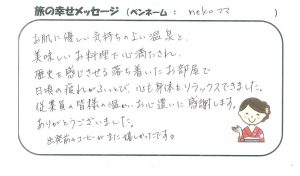 旅の幸せメッセージ (ペンネーム： nekoママ )
お肌に優しい気持ちのよい温泉と、
美味しいお料理で心満たされ、
歴史を感じさせる落ち着いたお部屋で
日頃の疲れがふっとび、心も身体もリラックスできました。
従業員の皆様の温かいお心遣いに感謝します。
ありがとうございました。
出発前のコーヒーがまた嬉しかったです。